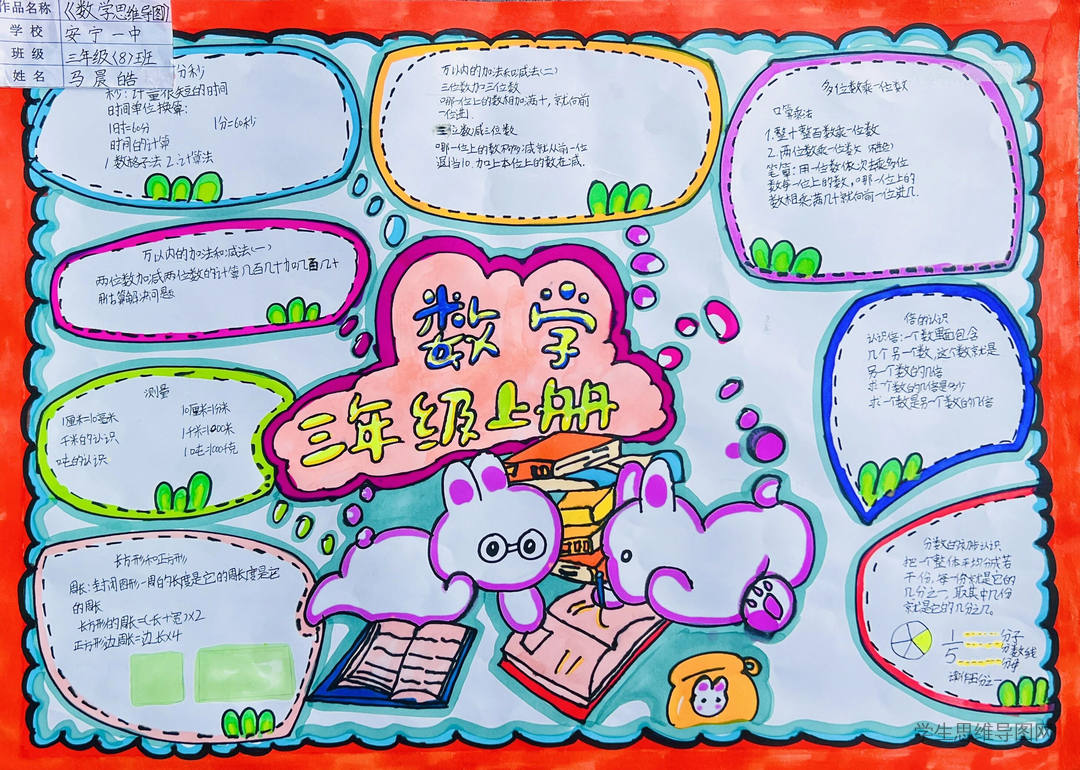 作品名称 《数学思维导图》
学校 安宁一中
班级 三年级(8)班
姓名 马晨皓
分秒
秒:计量很短的时间
时间单位换算:
1时=60分 1分=60秒
时间的计算
1.数格子法 2.计算法
万以内的加法和减法(二)
三位数加三位数
哪一位上的数相加满十,就向前
一位进1
三位数减三位数
哪一位上的数不够减就从前一位
退当10.加上本位上的数在减.
多位数乘一位数
口算乘法
1.整十整百数乘一位数
2.两位数乘一位数
笔算:用一位数依次去乘多位
数每一位上的数,哪一位上的
数相乘满几十就向前一位进几.
万以内的加法和减法(一)
两位数加减两位数的计算几百几十加几百几十
用估算解决问题
数学
三年级上册
倍的认识
认识倍:一个数里面包含
几个另一个数,这个数就是
另一个数的几倍
求一个数的几倍是多少
求一个数是另一个数的几倍
测量
1厘米=10毫米 10厘米=1分米
千米的认识 1千米=1000米
吨的认识 1吨=1000千克
长方形和正方形
周长:封闭图形一周的长度是它的周长度是它
的周长
长方形的周长=(长+宽)×2
正方形边周长=边长×4
分数的初步认识
把一个整体平均分成若
干份,每一份就是它的
几分之一,取其中几份
就是它的几分之几。
1 分子
分数线
5 分母
读作五分之一
学生思维导图网